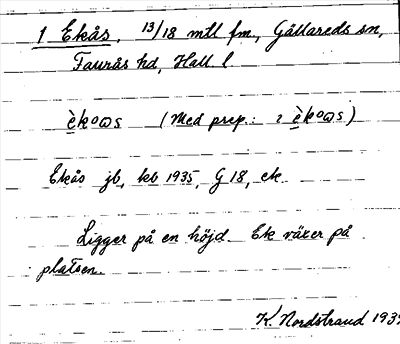 1 Ekås, 13/18 mtl fm., Gällareds sn,
Faurås hd, Hall. l
èkoɷs (Med prep.: ɩ èkoɷs)
Ekås jb, kb 1935, G 18, ek.
Ligger på en höjd. Ek växer på
platsen.
K. Nordstrand